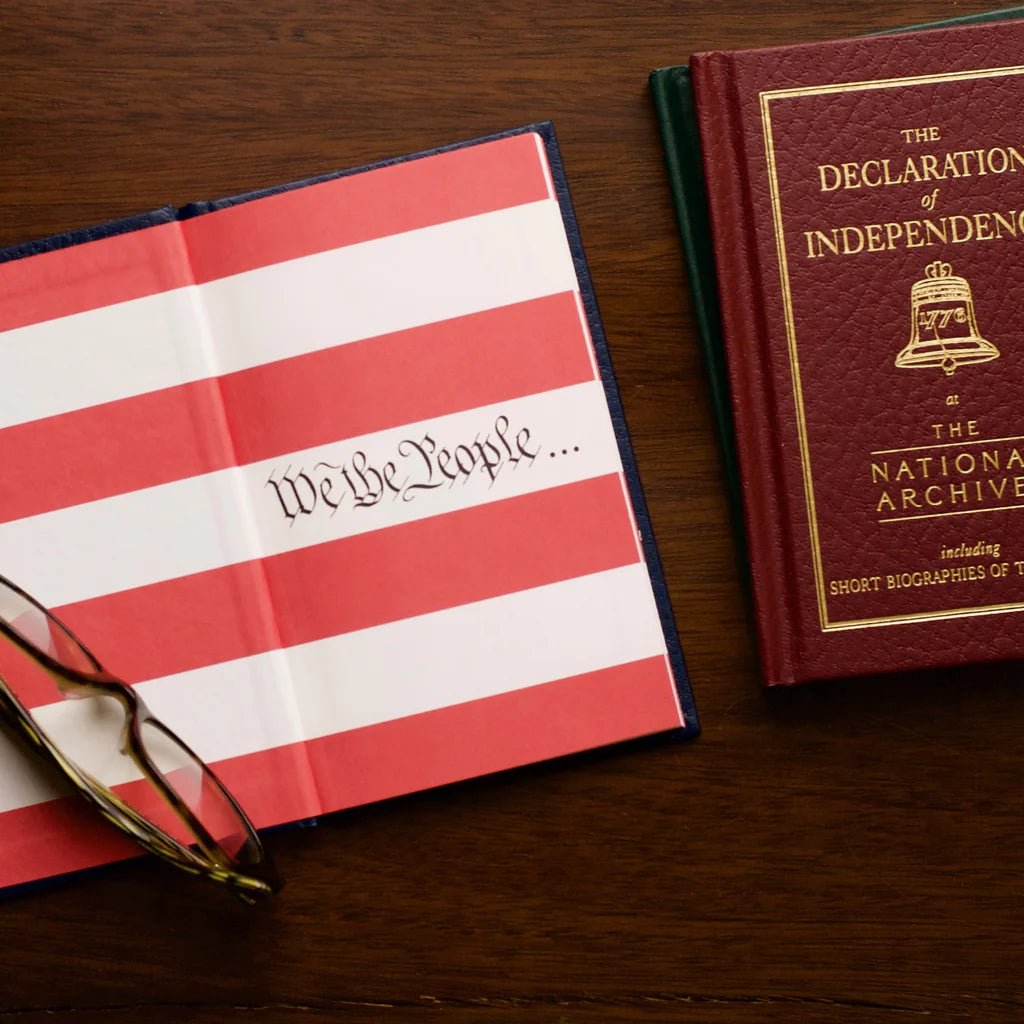 We the People...
THE
DECLARATION
of
INDEPENDENC
1776
at
THE
NATIONA
ARCHIVE
including
SHORT BIOGRAPHIES OF T